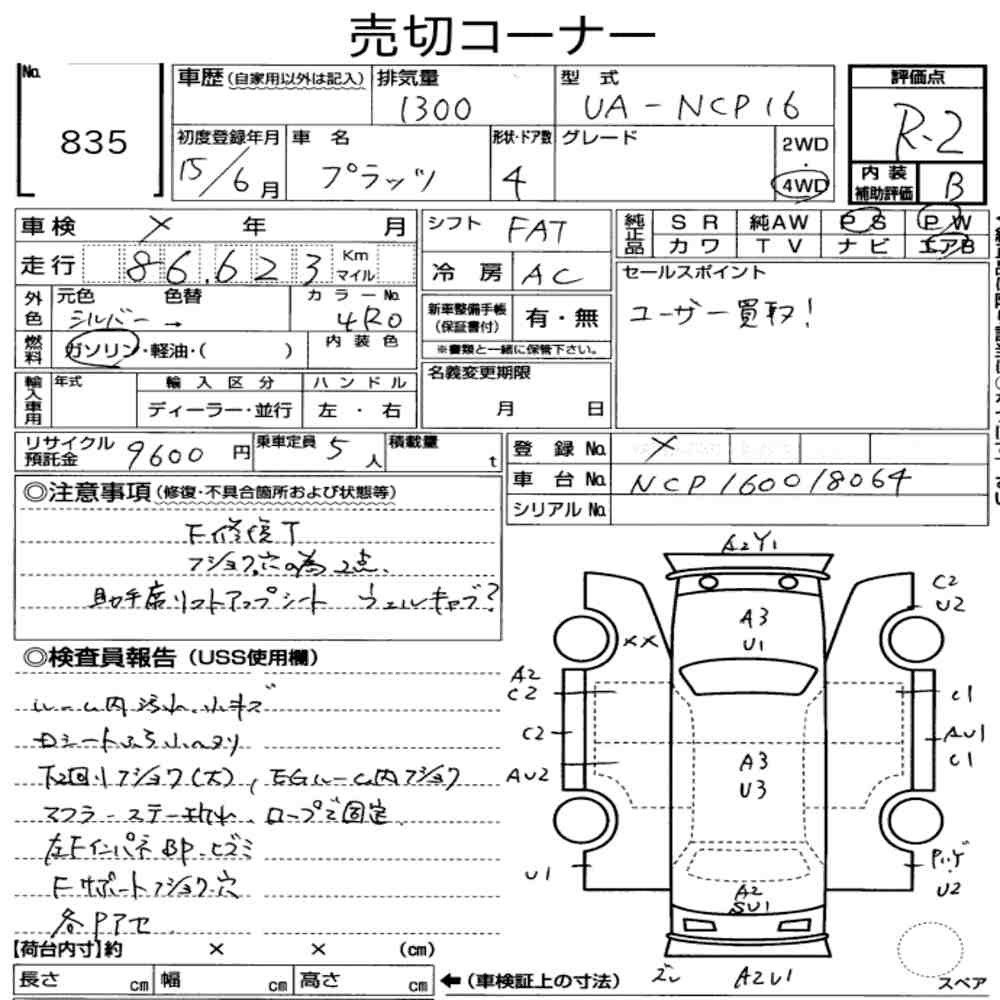 売切コーナー
No.
835
車歴 (自家用以外は記入)
排気量
1300
型 式
UA-NCP16
評価点
R-2
初度登録年月
15/6月
車 名
プラッツ
形状・ドア数
4
グレード
2WD
・
4WD
内 装
補助評価
B
車検 × 年 月
走行 86,623 Km マイル
外色 元色 色替
シルバー →
カラーNo.
4R0
燃料 ガソリン・軽油・( )
内 装 色
シフト FAT
冷 房 AC
新車整備手帳
(保証書付)
有・無
※書類と一緒に保管下さい。
純正品 SR 純AW PS PW
カワ TV ナビ エアB
セールスポイント
ユーザー買取!
輸入車用 年式
輸 入 区 分
ディーラー・並行
ハ ン ド ル
左 ・ 右
名義変更期限
月 日
リサイクル
預託金 9600 円
乗車定員 5 人
積載量 t
登 録 No. ×
車 台 No. NCP160018064
シリアル No.
◎注意事項 (修復・不具合箇所および状態等)
F修復了
フショク穴の為2点.
助手席リフトアップシート ウェルキャブ?
◎検査員報告 (USS使用欄)
ルーム内汚れ.小キズ
Dシートふち小ヘタリ
下回りフショク(大), EGルーム内フショク
マフラーステー折れ、ロープで固定.
左FインパネBP.ヒズミ
Fサポートフショク.穴
各Pアセ
A2Y1
A3
U1
XX
C2
U2
A2
C2
C1
C2
AU1
C1
AU2
A3
U3
U1
U2
A2
SU1
A2U1
スペア
【荷台内寸】約 × × (cm)
長さ cm 幅 cm 高さ cm
←(車検証上の寸法)